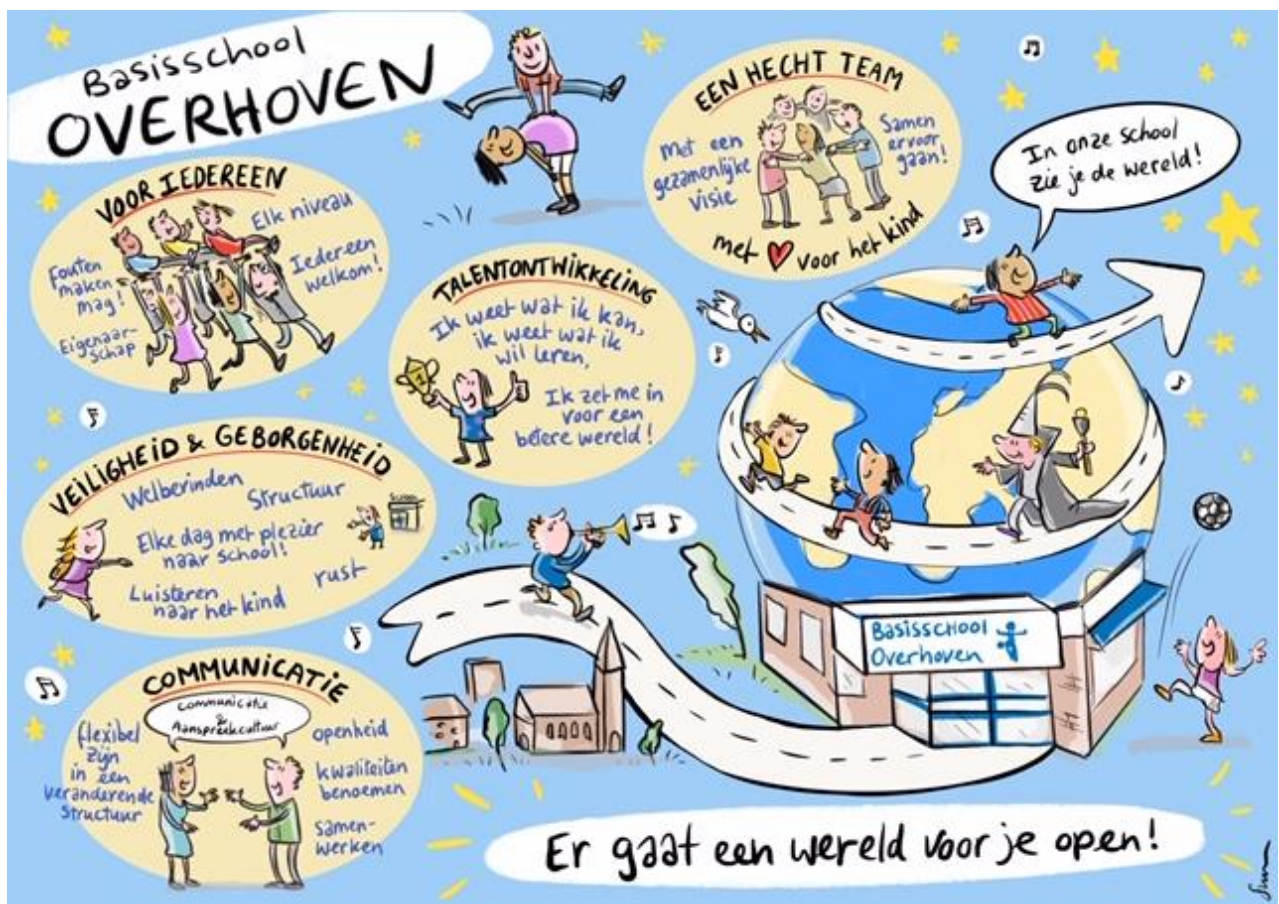 Basisschool
OVERHOVEN
VOOR IEDEREEN
Elk niveau
Fouten
maken
mag!
Iedereen
welkom!
Eigenaar-
schap
EEN HECHT TEAM
Met een
gezamenlijke
visie
Samen
ervoor
gaan!
met voor het kind
In onze school
zie je de wereld!
TALENTONTWIKKELING
Ik weet wat ik kan,
ik weet wat ik
wil leren,
Ik zet me in
voor een
betere wereld!
VEILIGHEID & GEBORGENHEID
Welbevinden
Structuur
SCHOOL
Elke dag met plezier
naar school!
Luisteren
naar het kind
rust
COMMUNICATIE
Communicatie
&
Aanspreekcultuur
flexibel
zijn
in een
veranderende
structuur
openheid
kwaliteiten
benoemen
samen-
werken
Basisschool
Overhoven
Er gaat een wereld voor je open!